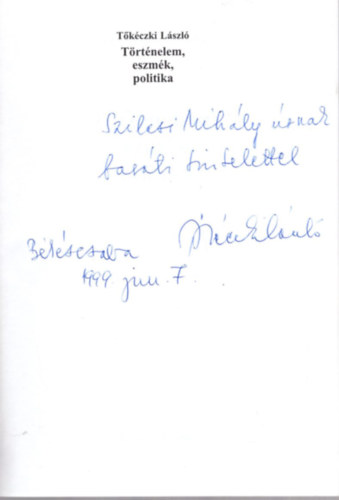 Tőkéczki László
Történelem,
eszmék,
politika
Szilcsi Mihály úrnak
baráti tisztelettel
Békéscsaba
Tőkéczki László
1999. jun. 7.